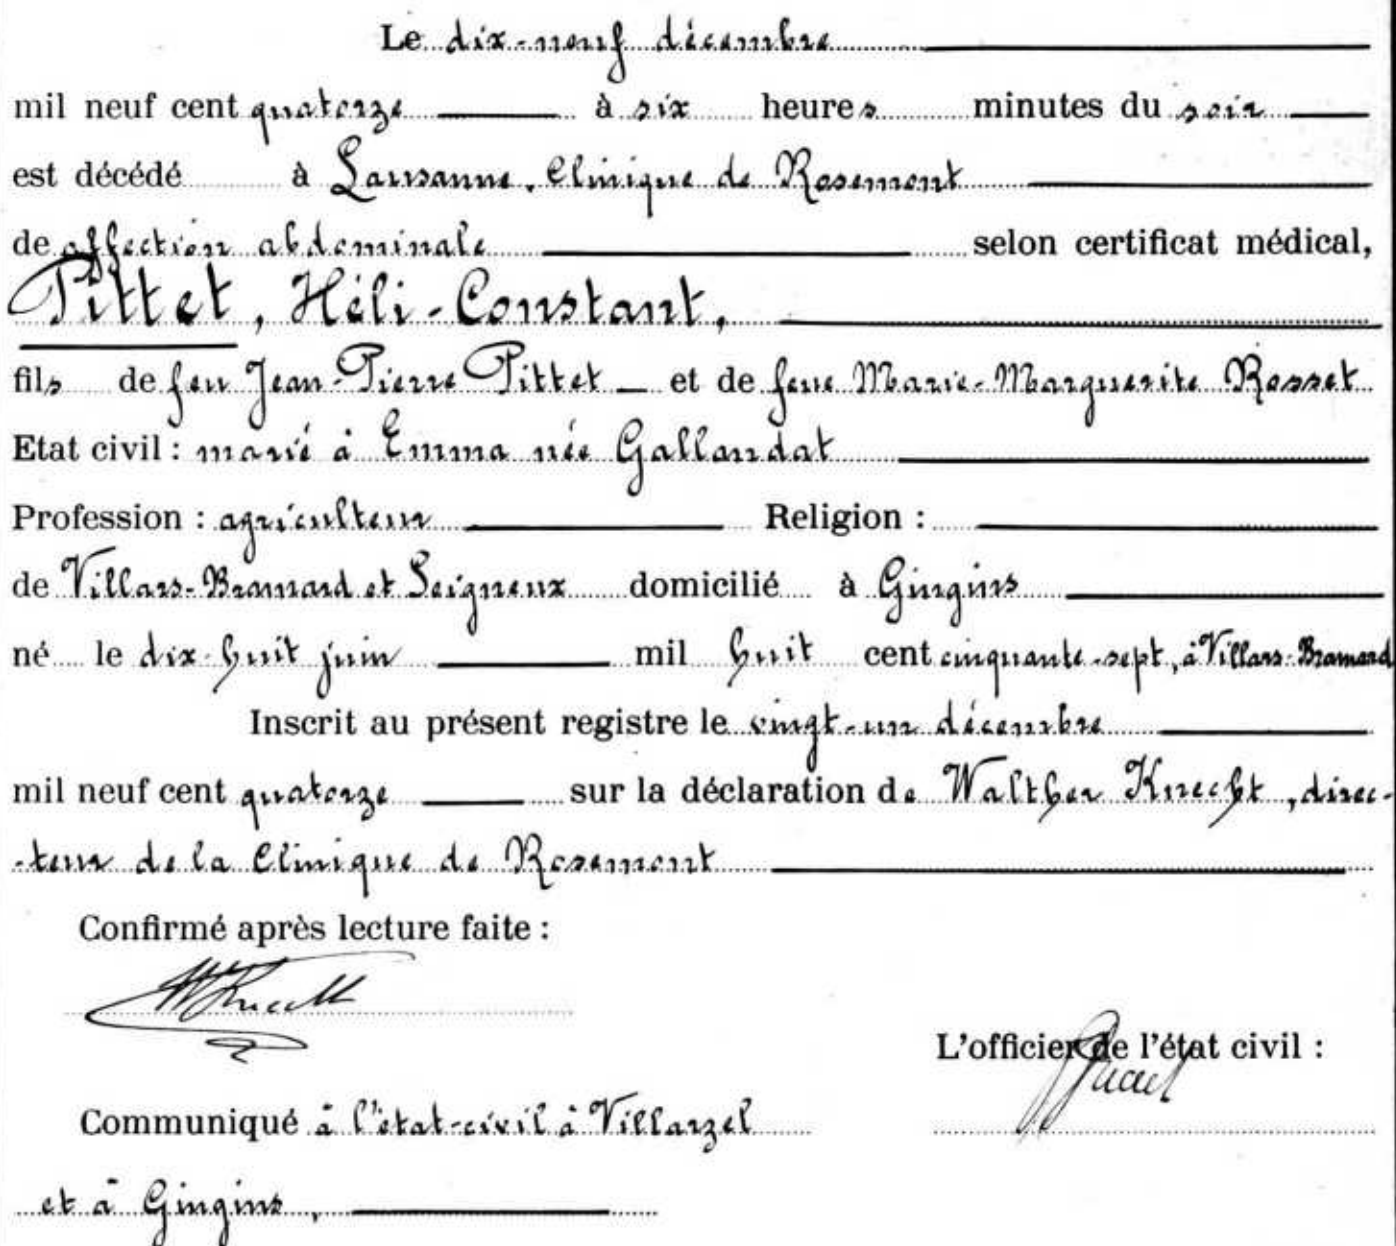 Le dix-neuf décembre
mil neuf cent quatorze à six heures minutes du soir
est décédé à Lausanne, Clinique de Rosemont
de affection abdominale selon certificat médical,
Pittet, Héli-Constant,
fils de feu Jean-Pierre Pittet et de feue Marie-Marguerite Rosset
Etat civil : marié à Emma née Gallandat
Profession : agriculteur Religion :
de Villars-Bramard et Seigneux domicilié à Gingins
né le dix-huit juin mil huit cent cinquante-sept, à Villars-Bramard
Inscrit au présent registre le vingt-un décembre
mil neuf cent quatorze sur la déclaration de Walther Knecht, direc-
-teur de la Clinique de Rosemont
Confirmé après lecture faite :
WKnecht
L'officier de l'état civil :
Communiqué à l'état-civil à Villarzel
et à Gingins,